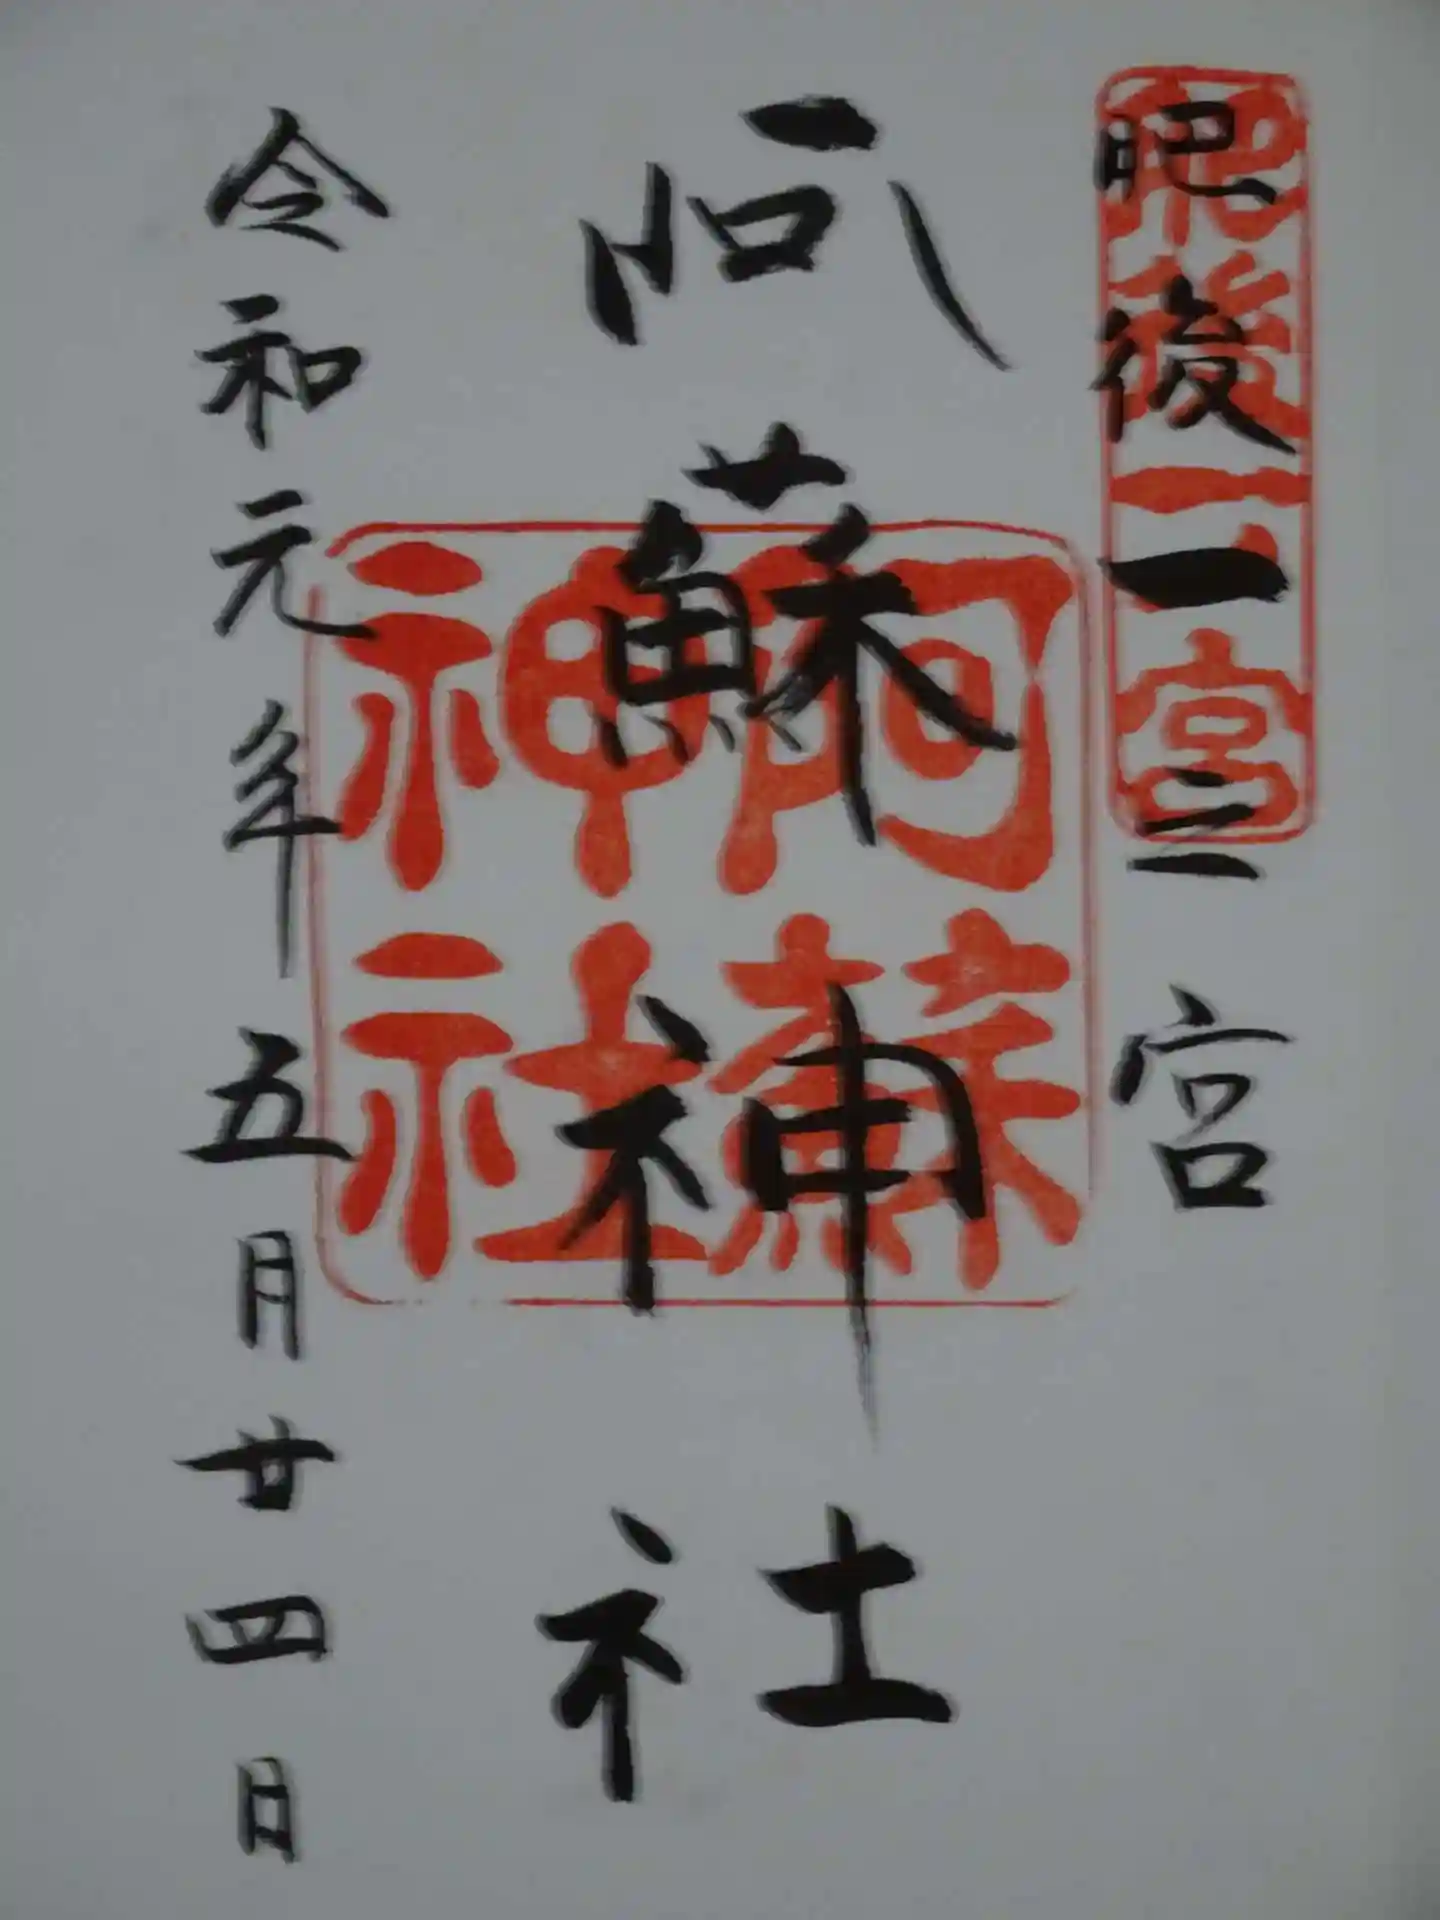 肥後一之宮
肥後一ノ宮
阿蘇神社
阿蘇神社
令和元年五月廿四日